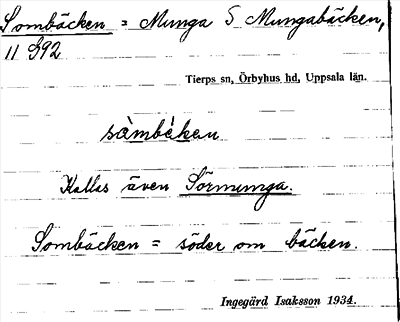 Sombäcken = Munga S Mungabäcken,
11 392
Tierps sn, Örbyhus hd, Uppsala län.
sàmbèkən
Kallas även Sörmunga.
Sombäcken = söder om bäcken.
Ingegärd Isaksson 1934.